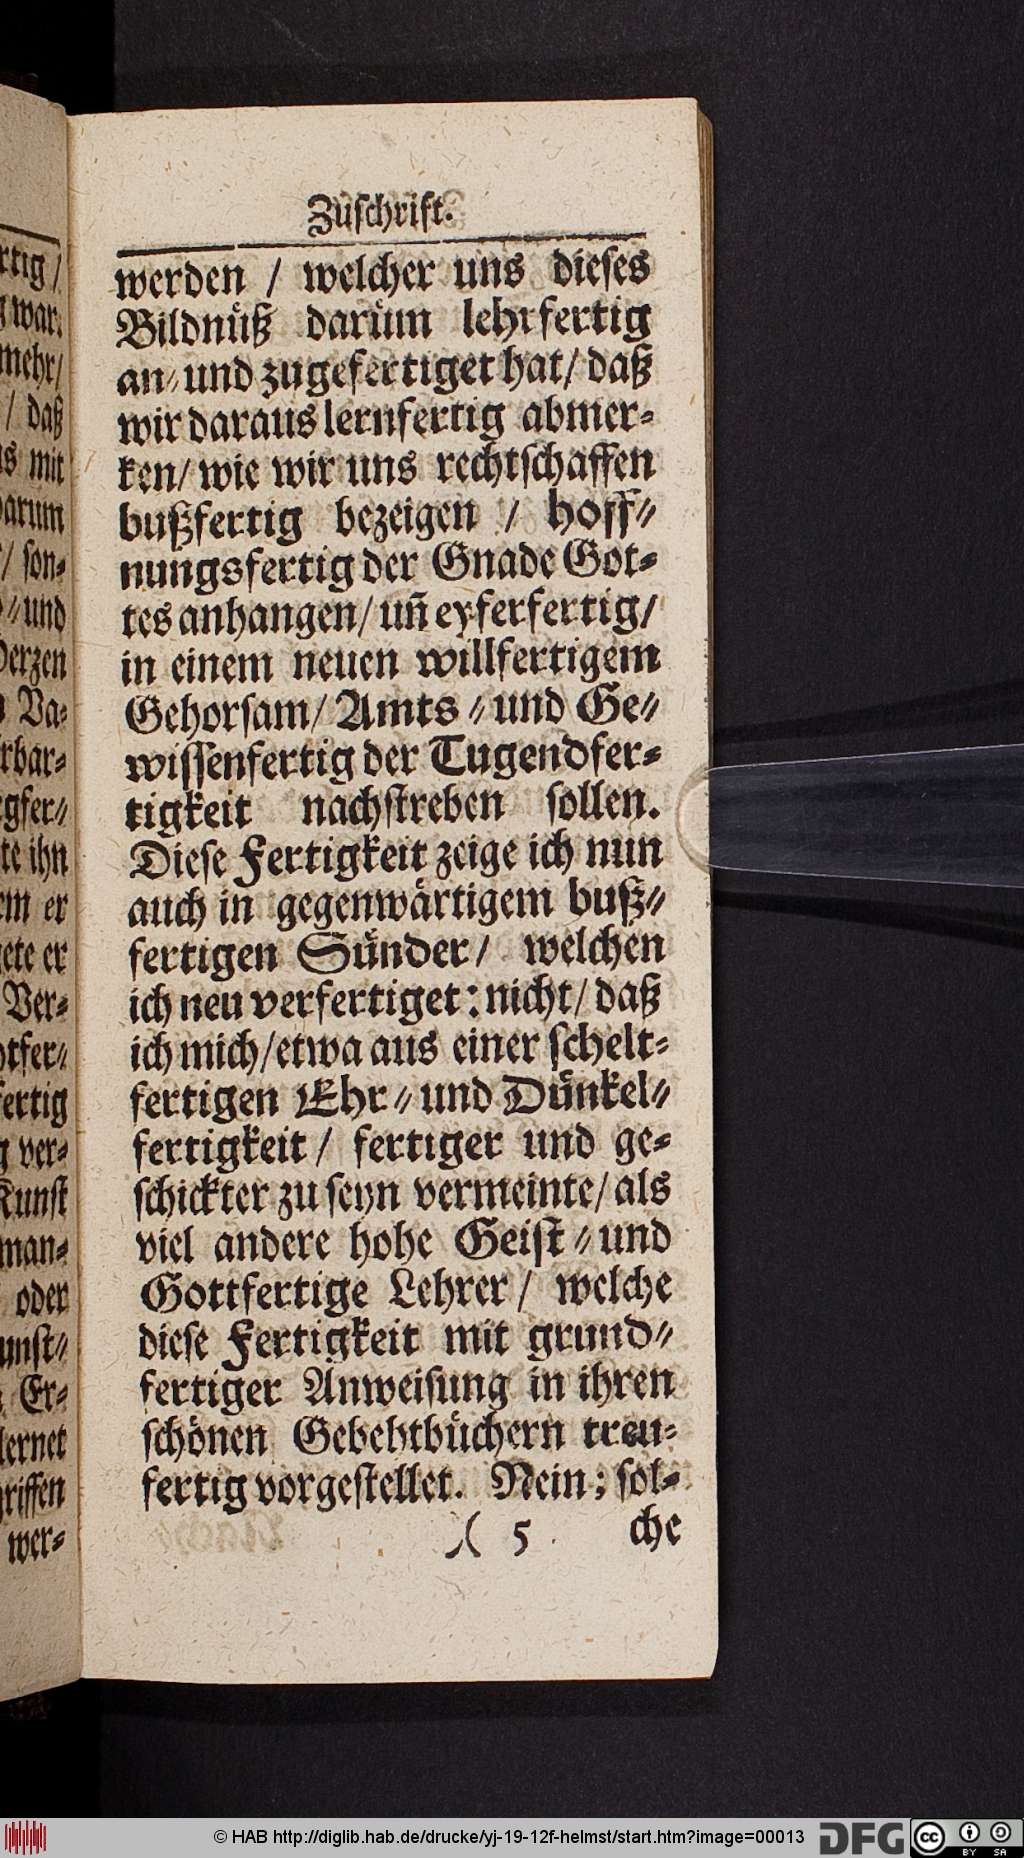 Zuſchrift.
werden / welcher uns dieſes
Bildnüß darum lehrfertig
an⸗und zugefertiget hat/ daß
wir daraus lernfertig abmer⸗
ken/ wie wir uns rechtſchaffen
bußfertig bezeigen / hoff⸗
nungsfertig der Gnade Got⸗
tes anhangen/ uñ eyferfertig/
in einem neuen willfertigem
Gehorſam/ Amts⸗und Ge⸗
wiſſenfertig der Tugendfer⸗
tigkeit nachſtreben ſollen.
Dieſe Fertigkeit zeige ich nun
auch in gegenwärtigem buß⸗
fertigen Sünder/ welchen
ich neu verfertiget: nicht/ daß
ich mich/etwa aus einer ſchelt⸗
fertigen Ehr⸗und Dünkel⸗
fertigkeit/ fertiger und ge⸗
ſchickter zu ſeyn vermeinte/ als
viel andere hohe Geiſt⸗und
Gottfertige Lehrer/ welche
dieſe Fertigkeit mit grund⸗
fertiger Anweiſung in ihren
ſchönen Gebehtbüchern treu⸗
fertig vorgeſtellet. Nein; ſol⸗
)( 5 che
rtig/
war.
mehr/
/ daß
s mit
darum
/ ſon⸗
⸗und
Herzen
Va⸗
rbar⸗
gfer⸗
te ihn
em er
ete er
Ver⸗
htfer⸗
fertig
g ver⸗
Kunſt
man⸗
oder
unſt⸗
Er⸗
lernet
griffen
wer⸗
© HAB http://diglib.hab.de/drucke/yj-19-12f-helmst/start.htm?image=00013
DFG
cc
BY SA